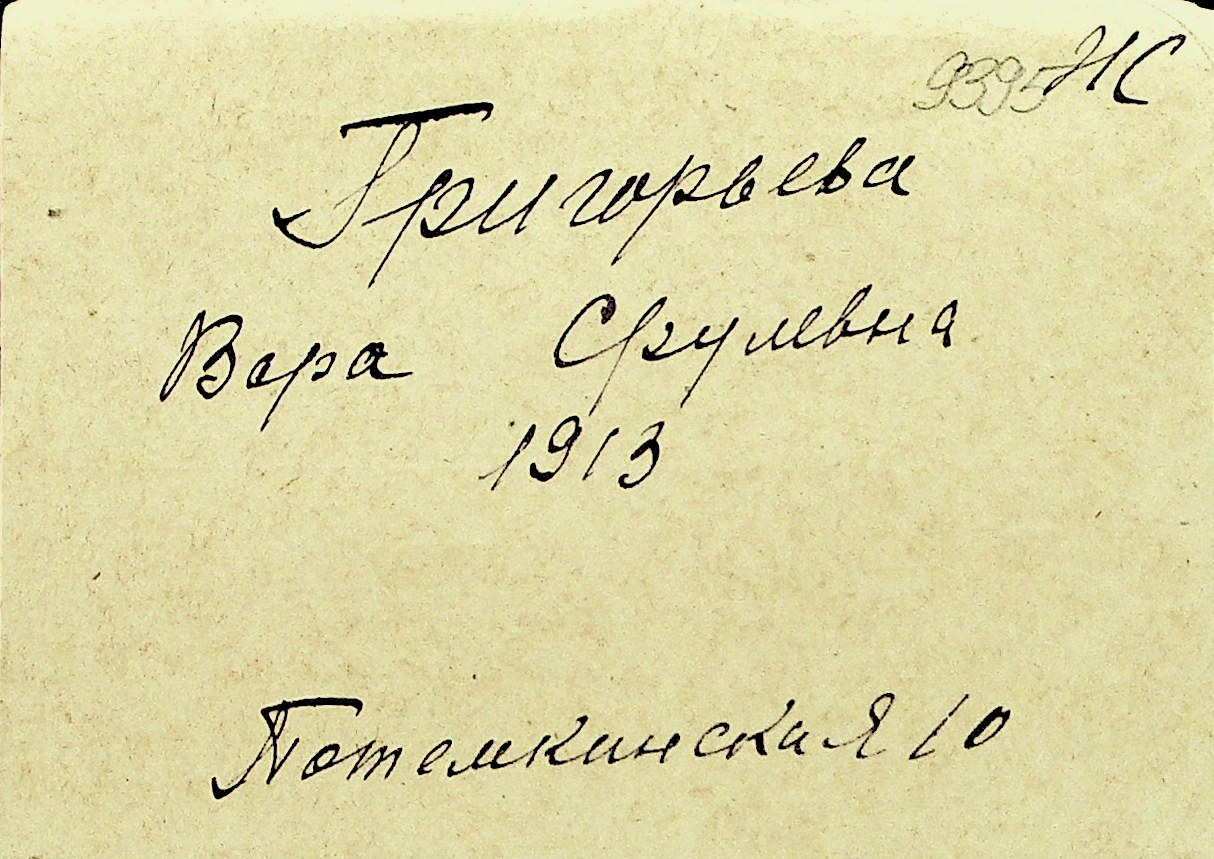 9395 НС
Григорьева
Вера Срулевна
1913
Потемкинская 10